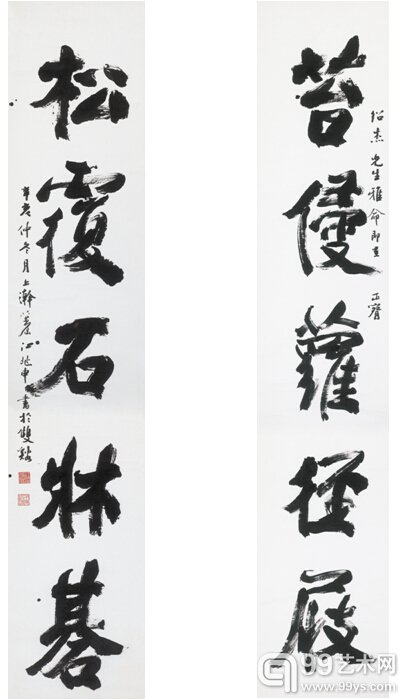 苔侵蘿徑屐
紹杰先生雅命即呈 正
松覆石牀碁
辛亥仲冬月上澣茮原江兆申書於雙谿
99艺术网
www.99ys.com